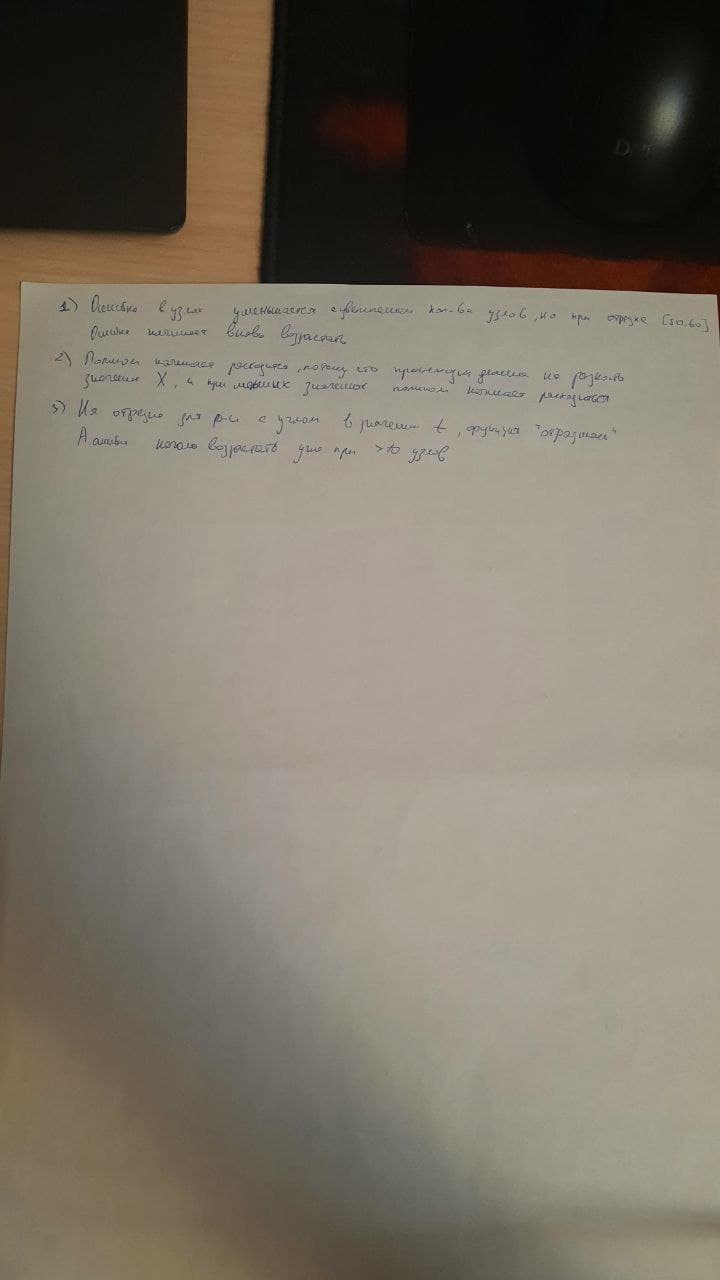 1) Ошибка в узлах уменьшается с увеличением кол-ва узлов, но при отрезке [50,60]
Ошибка начинает вновь возрастать
2) Полином начинает расходится, потому что происходит деление на разность
значения X, и при малых значениях полином начинает расходиться
3) На отрезке для ф-и с углом в значении t, функция "
А ошибка начала возрастать уже при >10 узлов